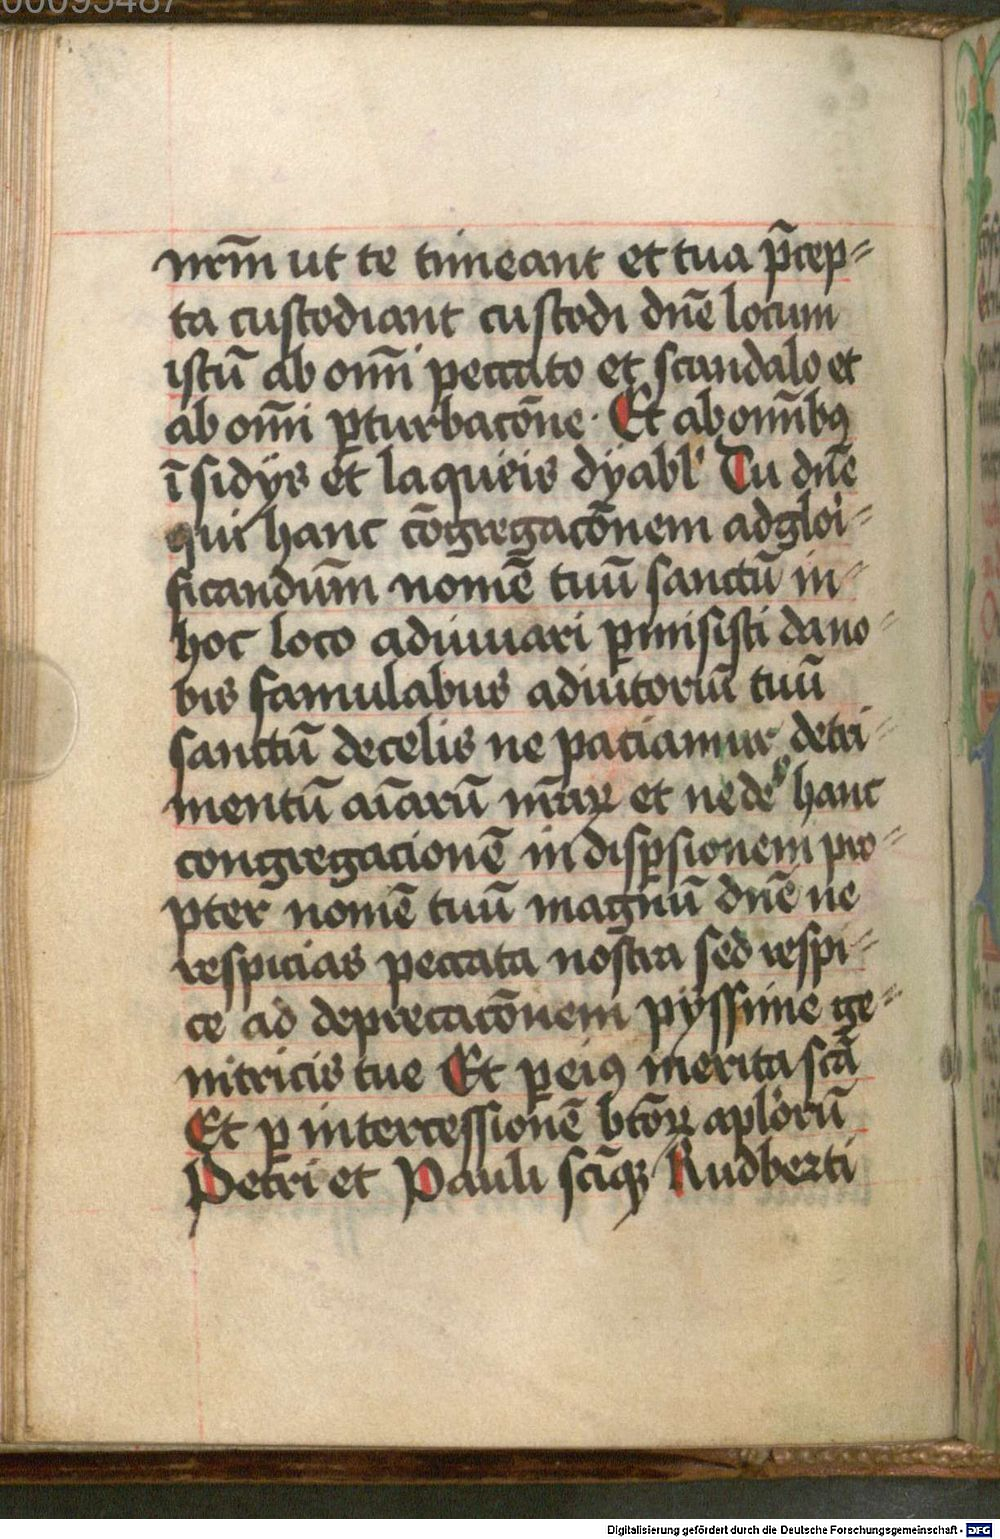 00095487
nrm̄ ut te timeant et tua p̄cep⸗
ta custodiant custodi dn̄e locum
istū ab om̄i peccato et scandalo et
ab om̄i ꝑturbacōne · Et ab omībꝫ
īsidijs et laqueis dyabl' Tu dn̄e
qui hanc cōgregacōnem ad gloi⸗
ficandum̄ nomē tuū sanctū in⸗
hoc loco adiuuari ꝑmisisti da no⸗
bis famulabus adiutoriū tuū
sanctū de celis ne paciamur detri⸗
mentū aīarū nr̄aꝝ et ne deˢ hanc
congregacionē in disꝑsionem pro⸗
pter nomē tuū magnū dn̄e ne
respicias peccata nostra sed respi⸗
ce ad deprecacōnem pijssime ge⸗
nitricis tue Et ꝑ eiꝰ merita scā
Et ꝑ intercessionē btōꝝ aplōrū
Petri et Pauli scīqꝫ Rudberti
Digitalisierung gefördert durch die Deutsche Forschungsgemeinschaft - DFG